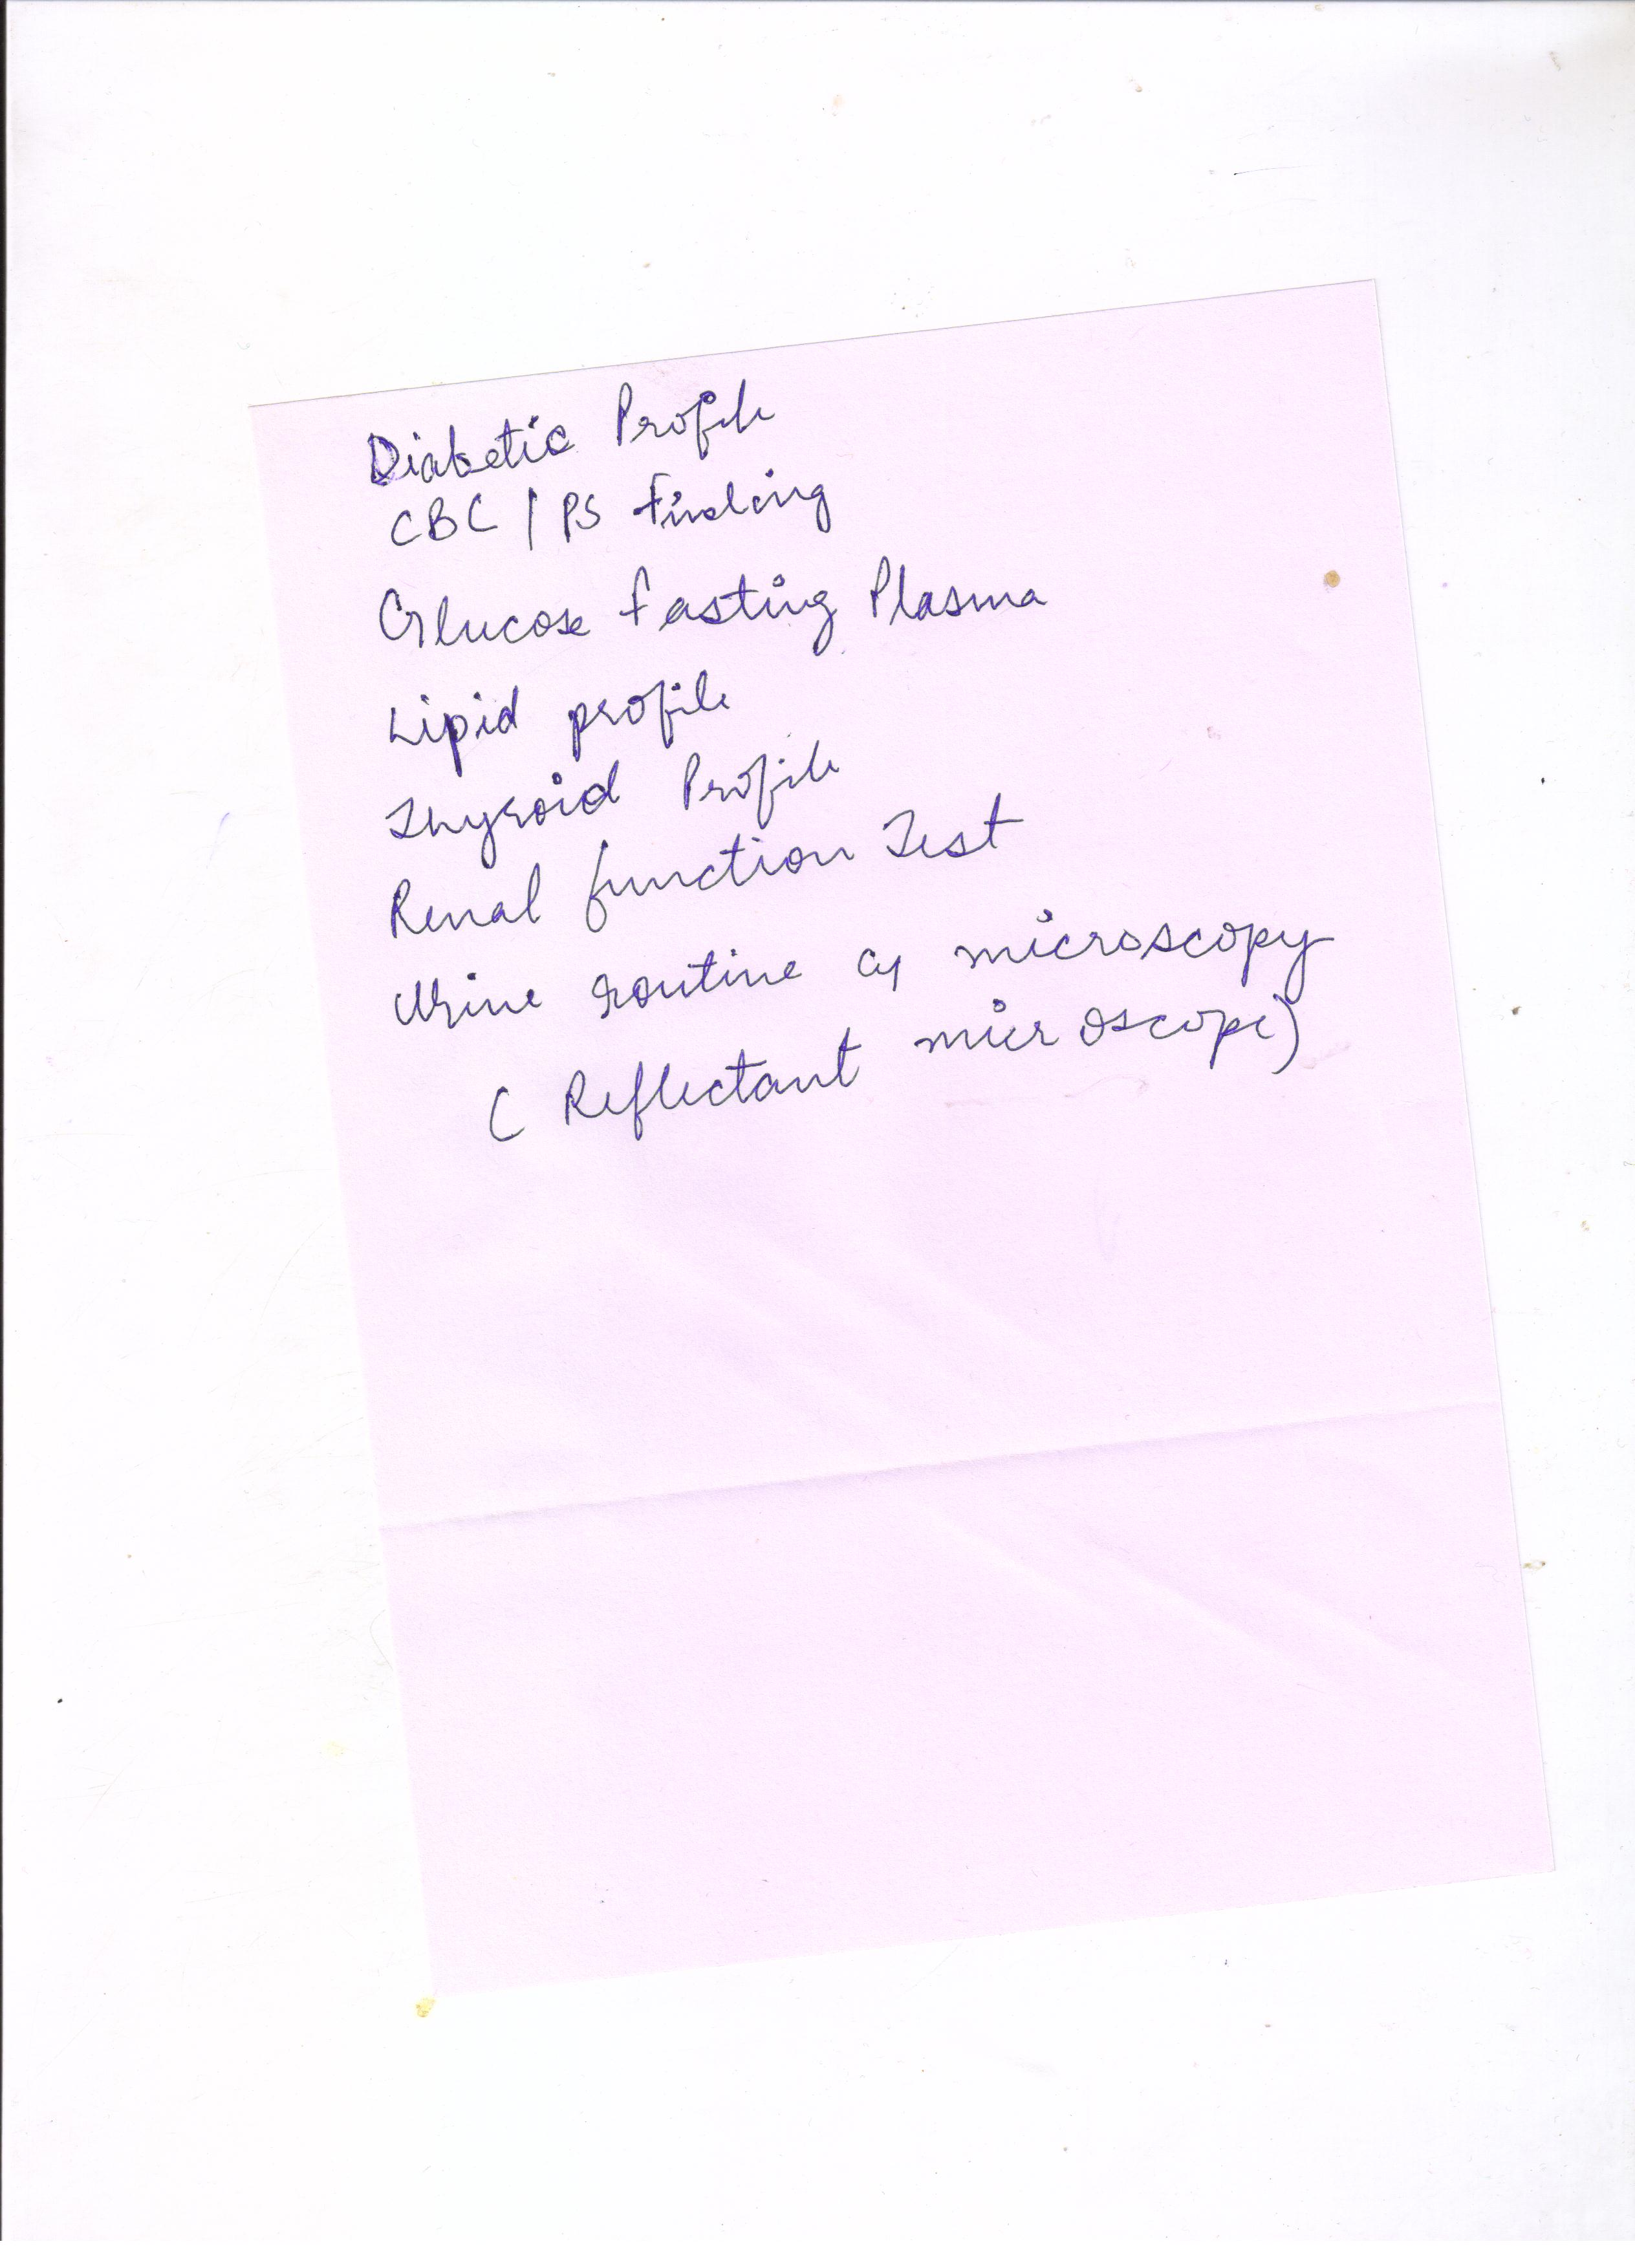 Diabetic Profile
CBC / PS finding
Glucose fasting Plasma
Lipid profile
Thyroid Profile
Renal function Test
Urine routine & microscopy
( Reflectant microscope)